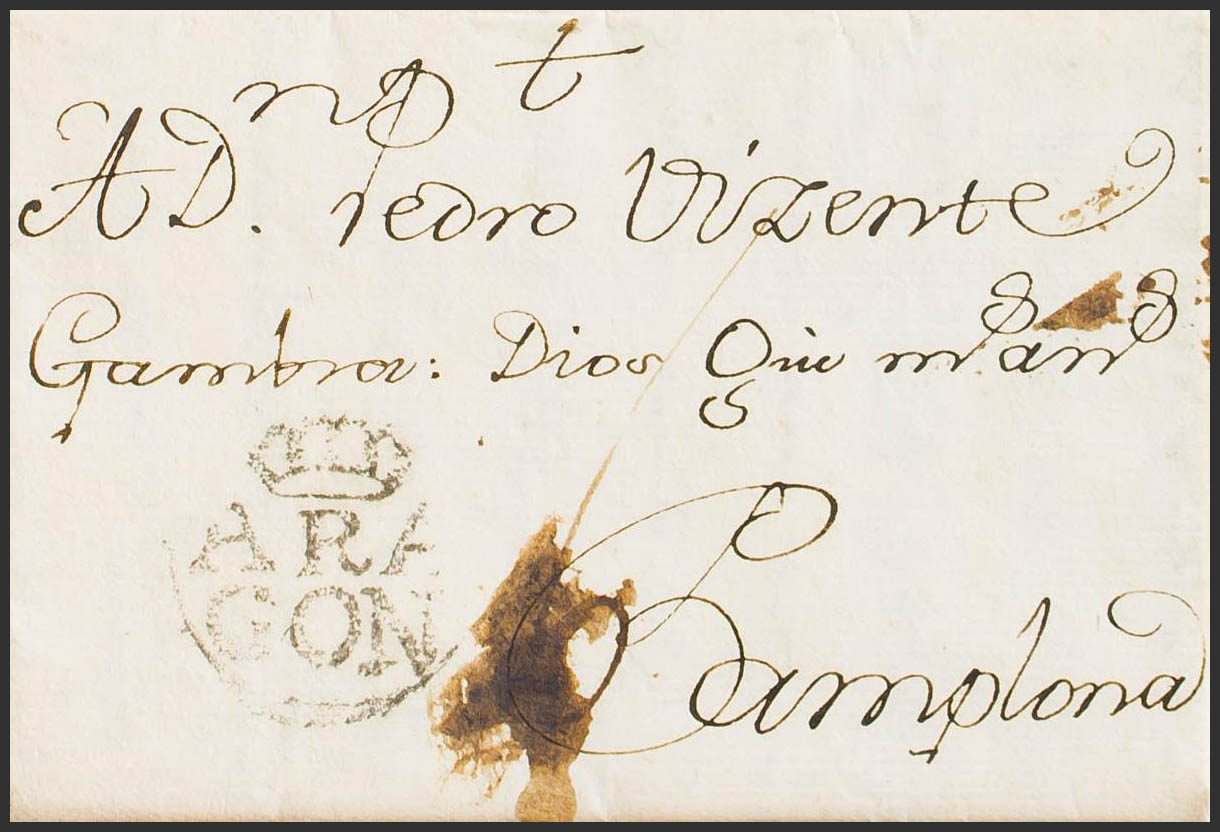 A D.ⁿ Pedro Vizente
Gambra: Dios Gũe mˢ anˢ
ARA
GON
Pamplona